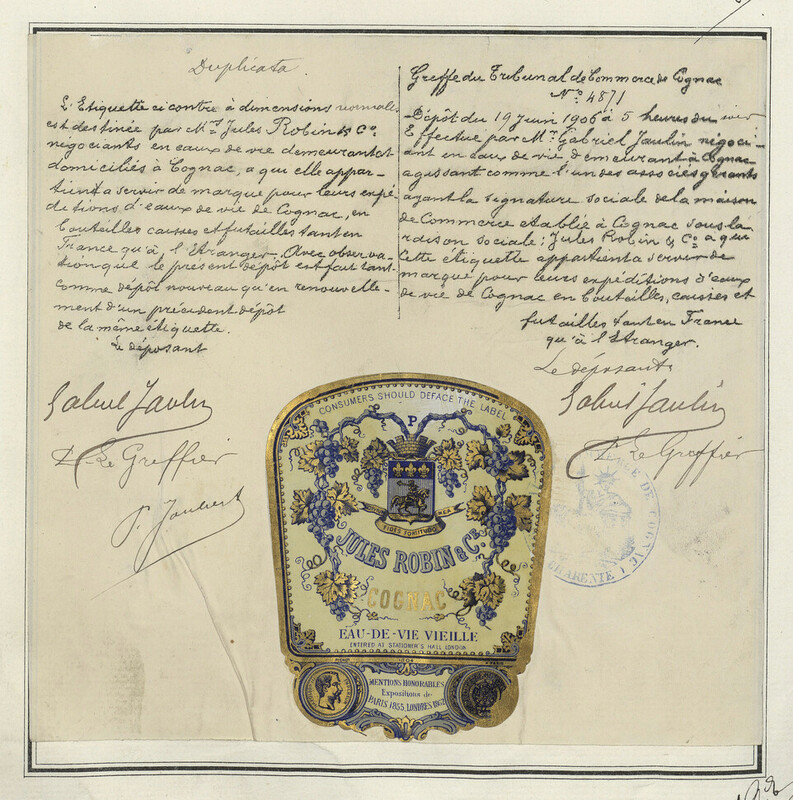 Duplicata.
L'Etiquette ci contre à dimensions normales
est destinée par Mrs Jules Robin & Co
négociants en eaux de vie demeurant et
domiciliés à Cognac, a qui elle appar-
tient a servir de marque pour leurs expé-
ditions d'eaux de vie de Cognac, en
bouteilles caisses et futailles tant en
France qu'à l'Etranger. Avec observa-
tion que le présent dépôt est fait tant
comme dépôt nouveau qu'en renouvelle-
ment d'un précédent dépôt
de la même étiquette.
Le déposant
Gabriel Jaulin
P. Le Greffier
Greffe du Tribunal de Commerce de Cognac
No 4871
Dépôt du 19 Juin 1906 à 5 heures du soir
Effectué par Mr Gabriel Jaulin négoci-
ant en eaux de vie demeurant à Cognac
agissant comme l'un des associés gérants
ayant la signature sociale de la maison
de Commerce établie à Cognac sous la
raison sociale: Jules Robin & Co a qui
cette étiquette appartient a servir de
marque pour leurs expéditions d'eaux
de vie de Cognac en bouteilles, caisses et
futailles tant en France
qu'à l'Etranger.
Le déposant
Gabriel Jaulin
P. Le Greffier
DE COGNAC
CHARENTE
CONSUMERS SHOULD DEFACE THE LABEL
P
FIDES FORTITUDO
JULES ROBIN & Co.
COGNAC
EAU-DE-VIE VIEILLE
ENTERED AT STATIONER'S HALL LONDON
MENTIONS HONORABLES
Expositions de
PARIS 1855, LONDRES 1862